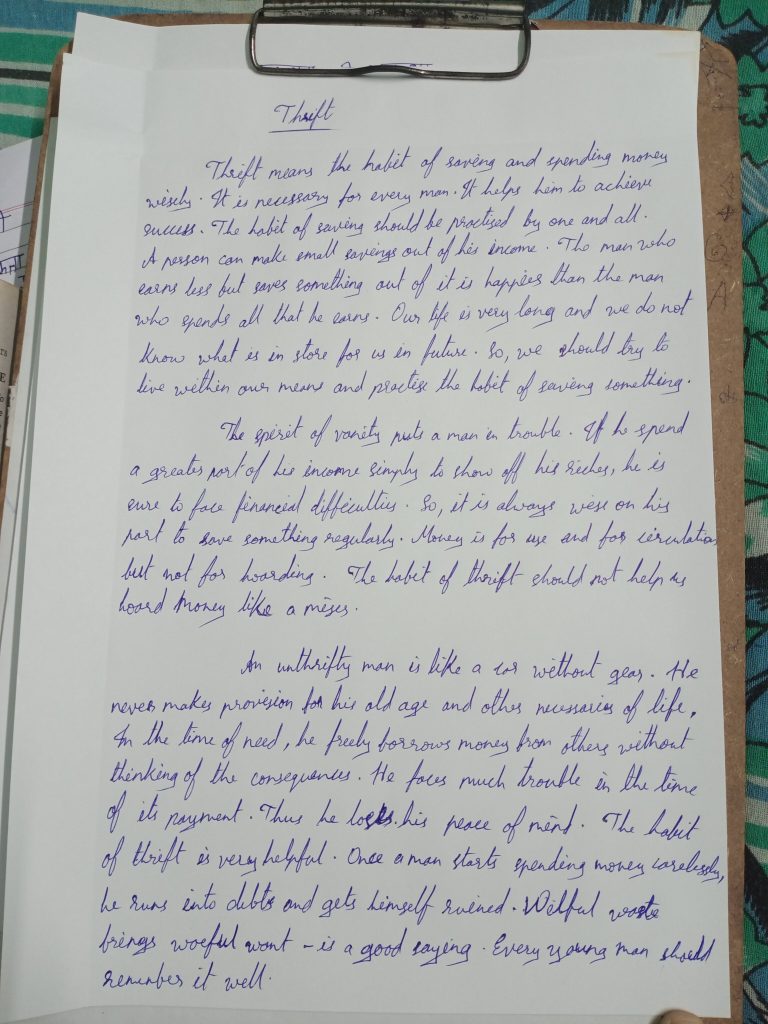 Thrift
Thrift means the habit of saving and spending money
wisely. It is necessary for every man. It helps him to achieve
success. The habit of saving should be practised by one and all.
A person can make small savings out of his income. The man who
earns less but saves something out of it is happier than the man
who spends all that he earns. Our life is very long and we do not
know what is in store for us in future. So, we should try to
live within our means and practise the habit of saving something.
The spirit of vanity puts a man in trouble. If he spend
a greater part of his income simply to show off his riches, he is
sure to face financial difficulties. So, it is always wise on his
part to save something regularly. Money is for use and for circulation
but not for hoarding. The habit of thrift should not help us
hoard money like a miser.
An unthrifty man is like a car without gear. He
never makes provision for his old age and other necessaries of life.
In the time of need, he freely borrows money from others without
thinking of the consequences. He faces much trouble in the time
of its payment. Thus he loses his peace of mind. The habit
of thrift is very helpful. Once a man starts spending money carelessly,
he runs into debts and gets himself ruined. Wilful waste
brings woeful want - is a good saying. Every young man should
remember it well.